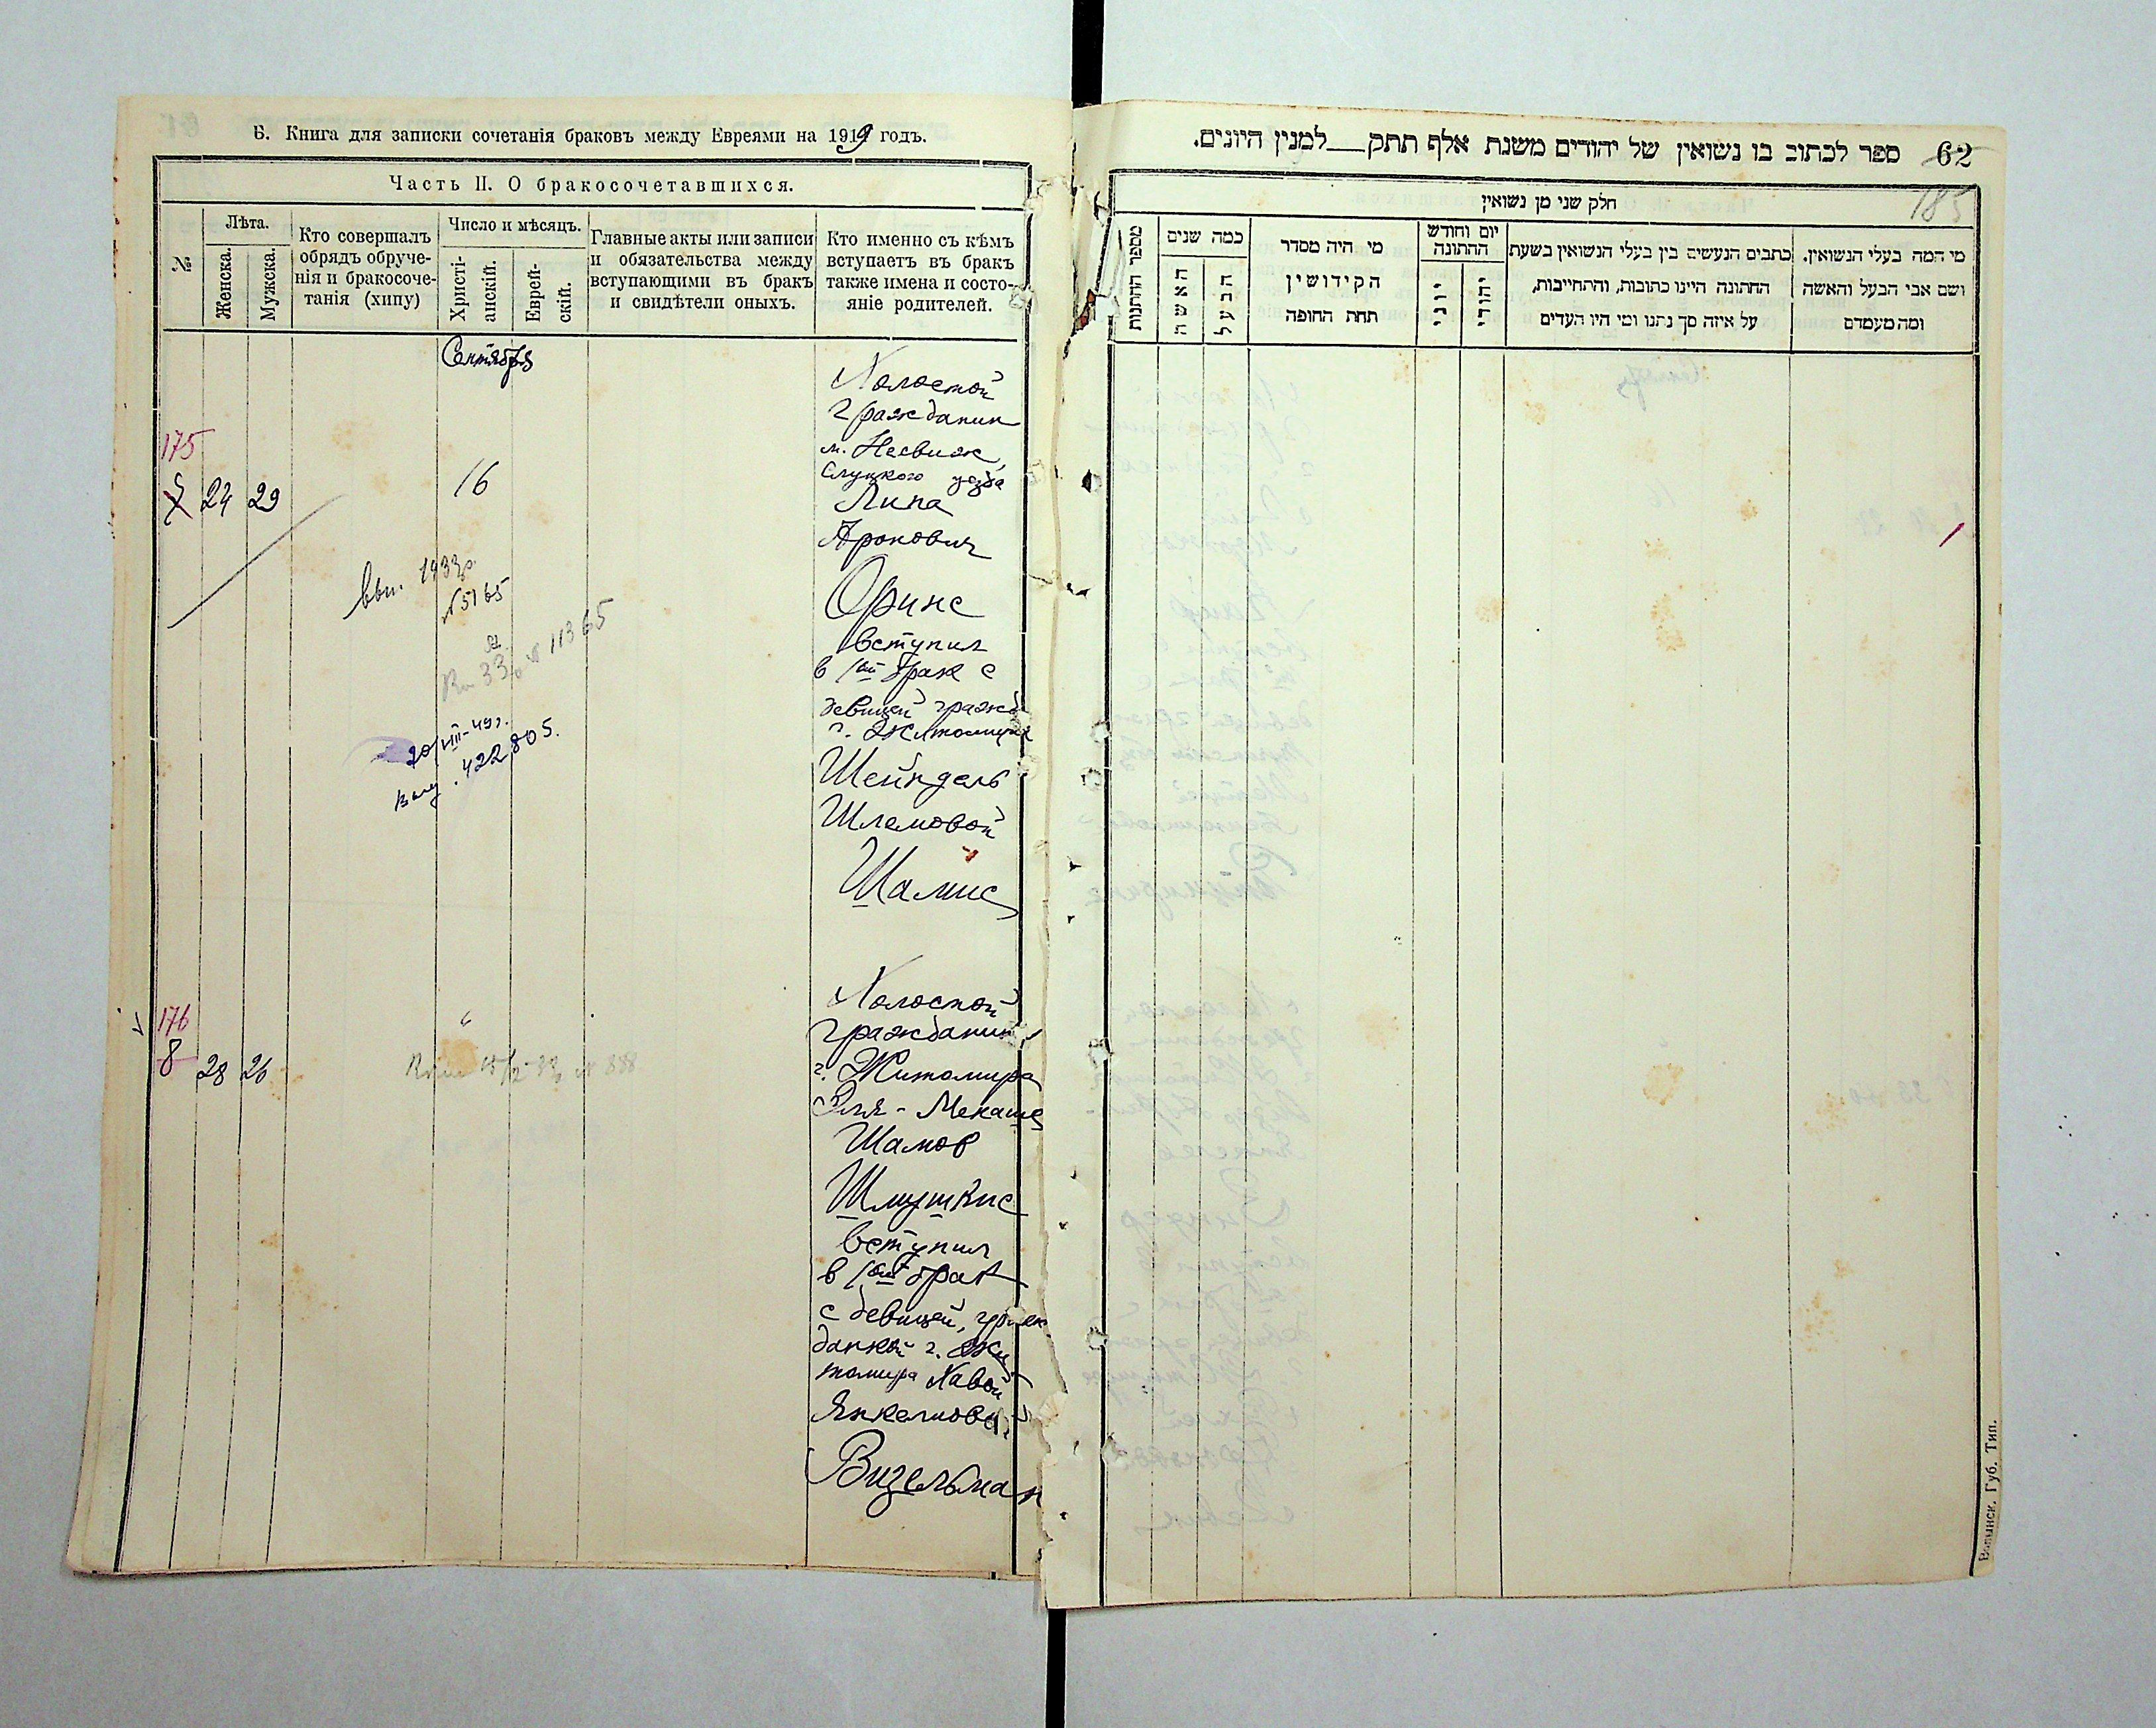 Б. Книга для записки сочетанія браковъ между Евреями на 1919 годъ.
Часть II. О бракосочетавшихся.
№
Лѣта.
Женска.
Мужска.
Кто совершалъ
обрядъ обруче-
нія и бракосоче-
танія (хипу)
Число и мѣсяцъ.
Христі-
анскій.
Еврей-
скій.
Главные акты или записи
и обязательства между
вступающими въ бракъ
и свидѣтели оныхъ.
Кто именно съ кѣмъ
вступаетъ въ бракъ
также имена и состо-
яніе родителей.
Сентября
175
24 29
16
Холостой
гражданин
м. Несвиж,
Слуцкого уезда
Липа
Аронович
Оринс
вступил
в 1ый брак с
девицей гражд
г. Житомира
Шейндель
Шлемовой
Шамис
1933г.
№5165
№ 11365
20/VIII-49г.
422805.
176
8 28 26
"
Холостой
гражданин
г. Житомира
Эля-Менаше
Шамов
Шмушкис
вступил
в 1ый брак
с девицей, граж
данкой г. Жи
томира Хавой
Янкелиовой
Визельман
62 ספר לכתוב בו נשואין של יהודים משנת אלף תתק__למנין היונים.
185
חלק שני מן נשואין
מספר החתונות
כמה שנים
האשה
הבעל
מי היה מסדר
הקידושין
תחת החופה
יום וחודש
החתונה
יוני
יהודי
כתבים הנעשים בין בעלי הנשואין בשעת
החתונה היינו כתובות, והתחייבות,
על איזה סך נתנו ומי היו העדים
מי המה בעלי הנשואין.
ושם אבי הבעל והאשה
ומה מעמדם
Волынск. Губ. Тип.